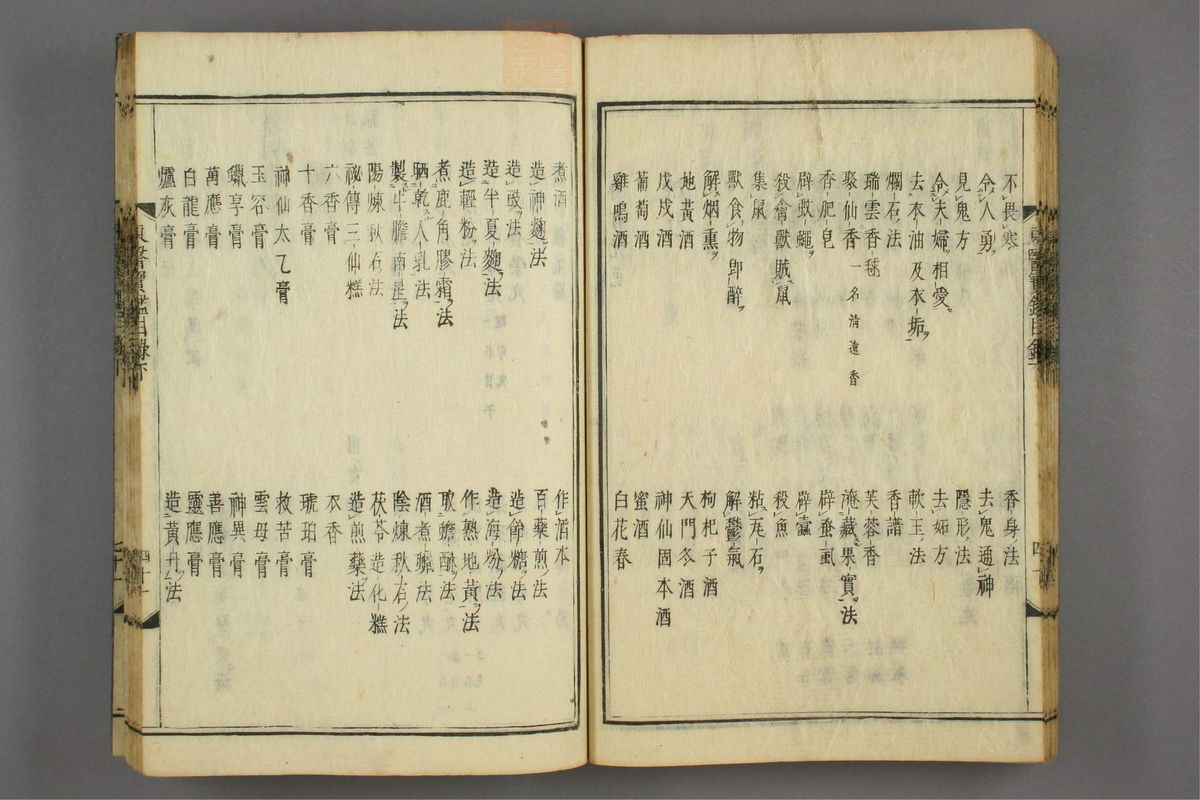 東醫寶鑑目錄下
不畏寒　香身法
令人勇　去鬼通神
見鬼方　隱形法
令夫婦相愛　去妬方
去衣油及衣垢　軟玉法
爛石法　香譜
瑞雲香毬　芙蓉香
聚仙香一名清遠香　淹藏果實法
香肥皂　辟蚤虱
辟蚊蠅　辟蠧
殺禽獸賊鼠　殺魚
集鼠　粘瓦石
獸食物卽醉　解鬱氣
解烟熏　枸杞子酒
地黃酒　天門冬酒
戊戌酒　神仙固本酒
葡萄酒　蜜酒
雞鳴酒　白花春
煮酒　作酒本
造神麴法　百藥煎法
造豉法　造飴糖法
造半夏麴法　造海粉法
造輕粉法　作熟地黃法
煮鹿角膠霜法　取蟾酥法
晒乾人乳法　酒煮蠟法
製牛膽南星法　陰煉秋石法
陽煉秋石法　茯苓造化糕
祕傳三仙糕　造煎藥法
六香膏　衣香
十香膏　琥珀膏
神仙太乙膏　救苦膏
玉容膏　雲母膏
蠟享膏　神異膏
萬應膏　善應膏
白龍膏　靈應膏
爐灰膏　造黃丹法
東醫寶鑑目錄下　四十一